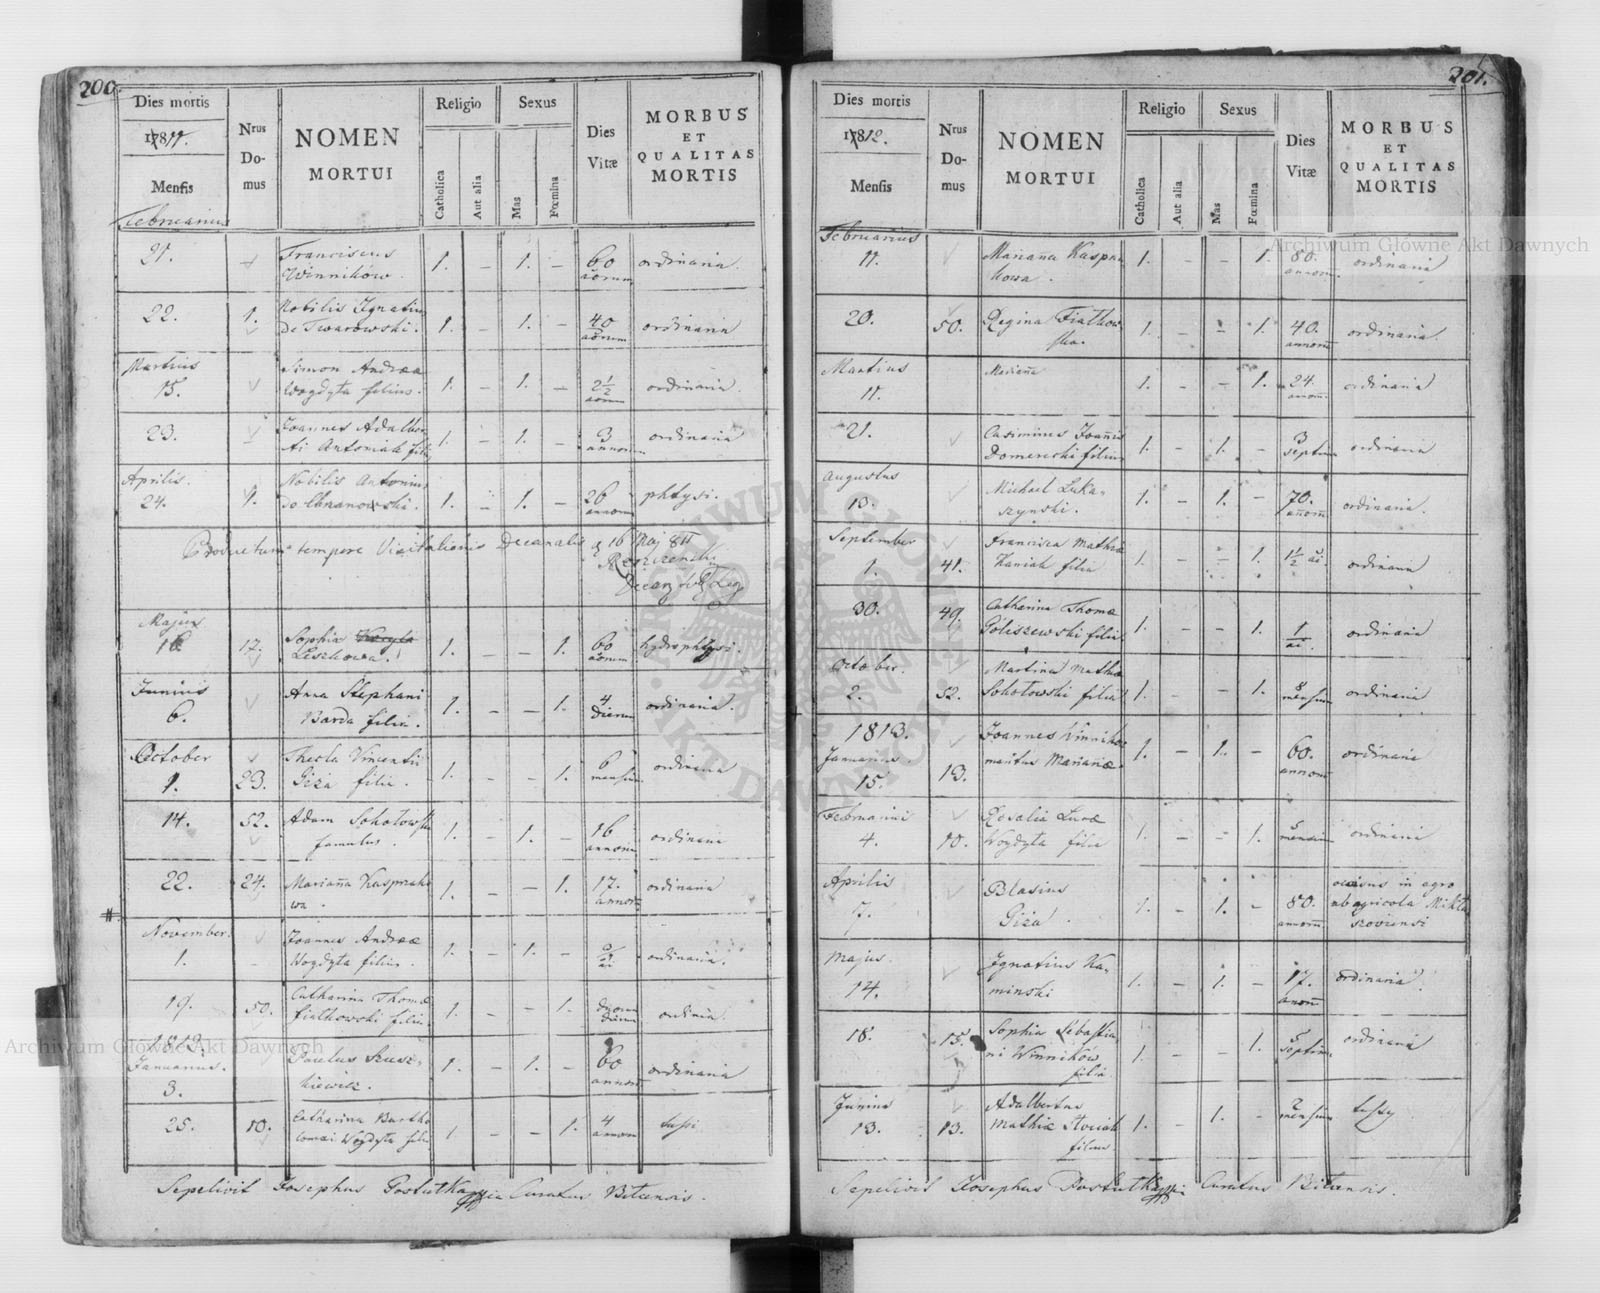 200.
Dies mortis
1811.
Mensis
Nrus
Do-
mus
NOMEN
MORTUI
Religio
Catholica
Aut alia
Sexus
Mas
Fœmina
Dies
Vitæ
MORBUS
ET
QUALITAS
MORTIS
Februarius
21.
Franciscus
Winnikow.
1. – 1. –
60
anorum
ordinaria.
22.
1.
Nobilis Ignatius
De Twarowski.
1. – 1. –
40
anorum
ordinaria
Martius
15.
Simon Andreæ
Woydyta filius.
1. – 1. –
2½
anorum
ordinaria.
23.
Joannes Adalber
ti Antoniak fili
1. – 1. –
3
annorum
ordinaria
Aprilis.
24.
1.
Nobilis Antonius
de Chranowski.
1. – 1. –
26
annorum
phtysi.
Productum tempore Visitationis Decanalis d 16 Maj 811
Majus
16
17.
Sophia
Leszkowa.
1. – – 1.
60
anorum
hydrophtysi.
Junius
6.
Anna Stephani
Barda filia.
1. – – 1.
4
dierum
ordinaria.
October
1.
23.
Thecla Vincentii
Giża filia.
1. – – 1.
6
mensium
ordinaria
14.
52.
Adam Sokołowski
famulus.
1. – 1. –
16
annorum
ordinaria
22.
24.
Marianna Kasprzako
wa.
1. – – 1.
17.
annorum
ordinaria
#
November.
1.
Joannes Andreæ
Woydyta filius.
1. – 1. –
ordinaria.
19.
50.
Catharina Thomæ
Fiałkowski filia
1. – – 1.
duorum
dierum
ordinia.
1812.
Januarius.
3.
Paulus Szusz-
kiewicz.
1. – 1. –
60
annorum
ordinaria
25.
10.
Catharina Bartho
lomæi Woydyta filia
1 – – 1.
4
annorum
tussi.
Sepelivit Josephus Curatus Bitensis.
201.
Dies mortis
1812.
Mensis
Nrus
Do-
mus
NOMEN
MORTUI
Religio
Catholica
Aut alia
Sexus
Mas
Fœmina
Dies
Vitæ
MORBUS
ET
QUALITAS
MORTIS
Februarius
11.
Marianna Kasprza
kowa.
1. – – 1.
80.
annorum.
ordinaria
20.
50.
Regina Fiałkow
ska.
1. – – 1.
40.
annorum
ordinaria.
Martius
11.
Marianna
1. – – 1.
24.
annorum.
ordinaria
21.
Casimirus Joannis
Domerecki filius
1. – 1. –
3
septim
ordinaria
Augustus
13.
Michael Luka-
szynski.
1. – 1. –
70.
annorum
ordinaria.
September
1.
41.
Francisca Mathiæ
Kaniak filia
1. – – 1.
1½ ai.
ordinaria
30.
49.
Catharina Thomæ
Goliszewski filia.
1. – – 1.
1
ai.
ordinaria
October.
2.
52.
Martina Mathiæ
Sokołowski filia
1. – – 1.
8
mensium
ordinaria
1813.
Januarius.
15.
13.
Joannes Winnikow
maritus Mariannæ
1. – 1. –
60.
annorum
ordinaria
Februarii
4.
10.
Rosalia Lucæ
Woydyta filia
1. – – 1.
mensium
ordinaria
Aprilis
7.
Blasius
Giża.
1. – 1. –
80.
annorum
occisus in agro
ab agricola Mikta
szoviensi
Majus.
14.
Ignatius Ka-
minski
1. – 1. –
17.
annorum
ordinaria.
18.
15.
Sophia Sebastia-
ni Winnikow
filia
1. – – 1.
septim
ordinaria
Junius
13.
13.
Adalbertus
Mathiæ Stociak
filius
1. – 1. –
mensium
Sepelivit Josephus Curatus Bitensis.
Archiwum Główne Akt Dawnych
Archiwum Główne Akt Dawnych
ARCHIWUM GŁÓWNE
AKT DAWNYCH